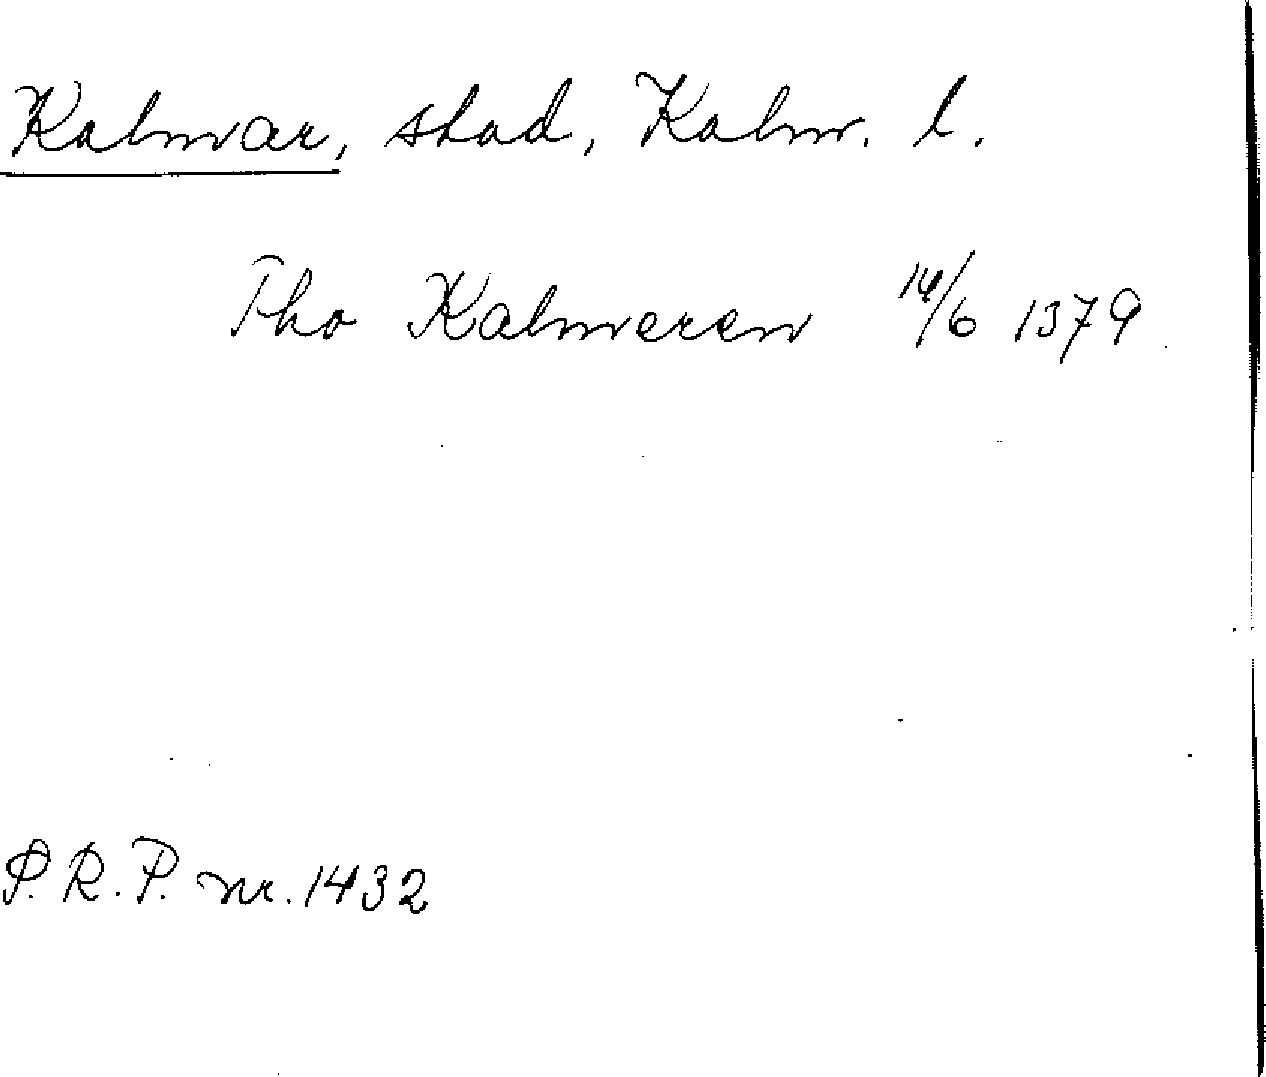 Kalmar, stad, Kalm. l.
Tho Kalmeren 14/6 1379
P.R.P. nr. 1432